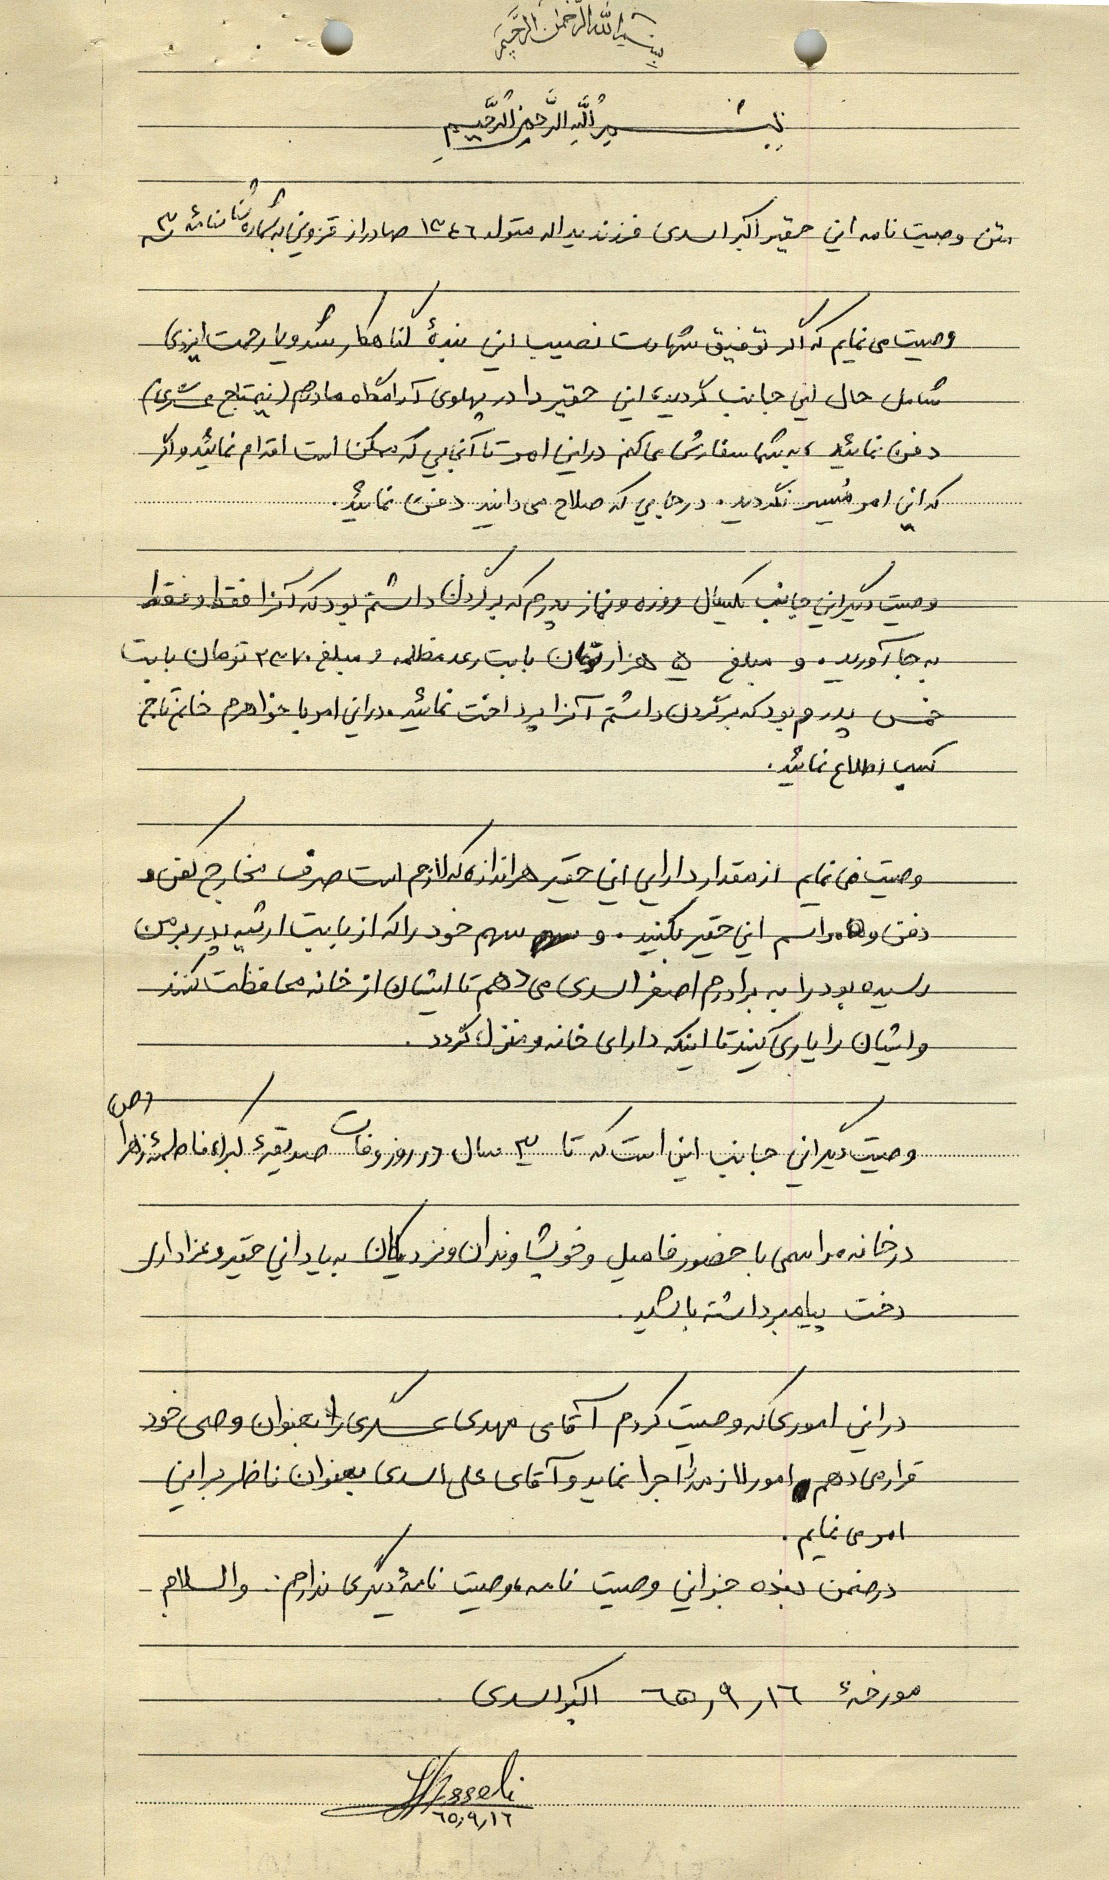 بسم الله الرحمن الرحیم
بسم الله الرحمن الرحیم
متن وصیت نامه این حقیر اکبر اسدی فرزند یداله متولد ۱۳۴۶ صادر از قزوین به شماره شناسنامه ۳
وصیت می نمایم که اگر توفیق شهادت نصیب این بندهٔ گناهکار شد و یا رحمت ایزدی
شامل حال این جانب گردید، این حقیر را در پهلوی آرامگاه مادرم (نیمتاج عسگری)
دفن نمائید، به شما سفارش می کنم در این امر تا آنجایی که ممکن است اقدام نمائید و اگر
که این امر میسر نگردید. در جایی که صلاح می دانید دفن نمائید.
وصیت دیگر این جانب یکسال روزه و نماز پدرم که بر گردن داشتم بود که آنرا فقط و فقط
به جا آورید. و مبلغ ۵ هزار تومان بابت رد مظالمه و مبلغ ۲۳۷۰ تومان بابت
خمس پدرم بود که بر گردن داشتم آنرا پرداخت نمائید. در این امر با خواهرم خانم تاج
کسب اطلاع نمائید.
وصیت می نمایم از مقدار دارایی این حقیر هر اندازه که لازم است صرف مخارج کفن و
دفن و مراسم این حقیر بکنید. و سهم خود را که از بابت ارثیه پدر بر من
رسیده بود را به برادرم اصغر اسدی می دهم تا ایشان از خانه محافظت کنند
و ایشان را یاری کنید تا اینکه دارای خانه و منزل گردد.
وصیت دیگر این جانب این است که تا ۳ سال در روز وفات صدیقهٔ کبراء فاطمهٔ زهرا (ص)
در خانه مراسمی با حضور فامیل و خویشاوندان و نزدیکان به یاد این حقیر و عزاداری
دخت پیامبر داشته باشید.
در این اموری که وصیت کردم آقای مهدی عسگری را بعنوان وصی خود
قرار می دهم امور لازم را اجرا نماید و آقای علی اسدی بعنوان ناظر بر این
امر می نمایم.
در ضمن بنده جز این وصیت نامه، وصیت نامهٔ دیگری ندارم. والسلام
مورخهٔ ۶۵/۹/۱۶ اکبر اسدی
Assedi
۶۵/۹/۱۶